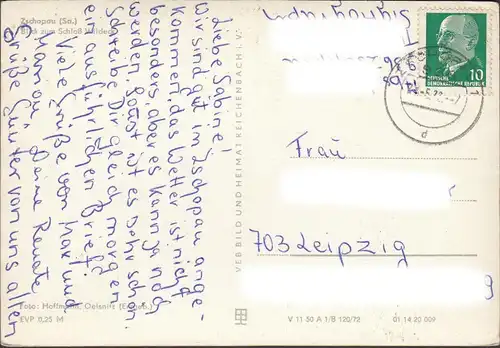 Zschopau (Sa.)
Blick zum Schloß Wildeck
Liebe Sabine!
Wir sind gut in Zschopau ange-
kommen, das Wetter ist nicht
besonders, aber es kann ja noch
werden, sonst ist es sehr schön.
Schreibe Dir gleich morgen
ein ausführlichen Brief.
Viele Grüße von Mar und
Marion. Deine Renate
Grüße Gunter von uns allen
Foto: Hoffmann, Oelsnitz (Erzgeb.)
EVP 0,25 M
VEB BILD UND HEIMAT REICHENBACH i. V.
V 11 50 A 1/B 120/72
01 14 20 009
DEUTSCHE
DEMOKRATISCHE REPUBLIK
10
d
Frau
703 Leipzig